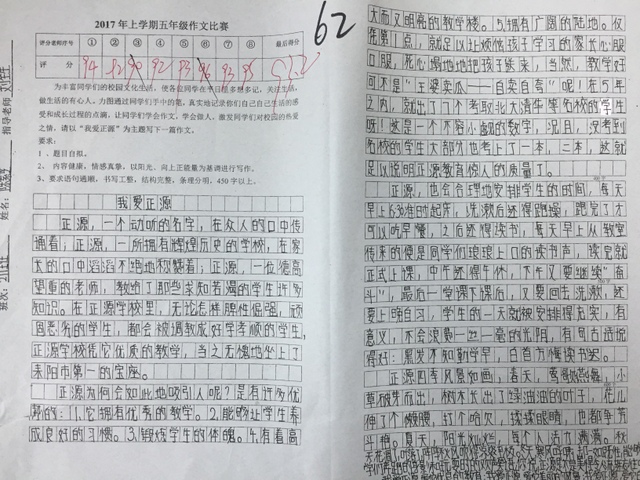 2017 年上学期五年级作文比赛
62
评分老师序号 ① ② ③ ④ ⑤ ⑥ ⑦ ⑧ 最后得分
评 分 94 90 92 93 93 95
为丰富同学们的校园文化生活，使各位同学在节日里多想多记，关注生活，
做生活的有心人。力图通过同学们手中的笔，真实地记录你们自己自己生活的感
受和成长过程的点滴，让同学们学会作文，学会做人，激发同学们对校园的热爱
之情，请以“我爱正源”为主题写下一篇作文。
要求：
1、题目自拟。
2、内容健康，情感真挚，以阳光，向上正能量为基调进行写作。
3、要求语句通顺，书写工整，结构完整，条理分明，450字以上。
指导老师
姓名：
班次：
我爱正源
正源，一个动听的名字，在众人的口中传
诵着；正源，一所拥有辉煌历史的学校，在家
长的口中滔滔不绝地称赞着；正源，一位德高
望重的老师，教给了那些求知若渴的学生许多
知识。在正源学校里，无论怎样脾性倔强，顽
固愚劣的学生，都会被调教成好学孝顺的学生，
正源学校凭它优质的教学，当之无愧地坐上了
耒阳市第一的宝座。
正源为何会如此地吸引人呢？是有许多优
势的：1.它拥有优秀的教学。2.能够让学生养
成良好的习惯。3.锻炼学生的体魄。4.有着高
大而又明亮的教学楼。5.拥有广阔的陆地。仅
凭第1点，就足以让烦恼孩子学习的家长心服
口服，死心塌地地把孩子送来，当然，教学好
可不是“王婆卖瓜——自卖自夸”呢！在5年
之内，就出了7个考取北大清华等名校的学生
呀！这是一个不容小觑的数字，况且，没考到
名校的学生大部分也考上了一本，二本，这就
足以说明正源教育惊人的质量了。
正源，也会合理地安排学生的时间，每天
早上6:30准时起床，洗漱后还得跑操，跑完了才
可以吃早餐，之后还得读书，每天早上从教室
传来的便是同学们琅琅上口的读书声，读完就
正式上课，中午还得午休，下午又要继续“奋
斗”，最后一堂课下课后，又要回去洗漱，还
要上晚自习，学生的一天就被安排得充实，有
意义，不会浪费一丝一毫的光阴，有句古话说
得好：黑发不知勤学早，白首方悔读书迟。
正源四季风景如画，春天，莺歌燕舞，小
草破芽而出，树木长出了绿油油的叶子，花儿
伸了个懒腰，打个哈欠，揉揉眼睛，也都争芳
斗艳。夏天，阳光灿烂，每个人活力满满。秋